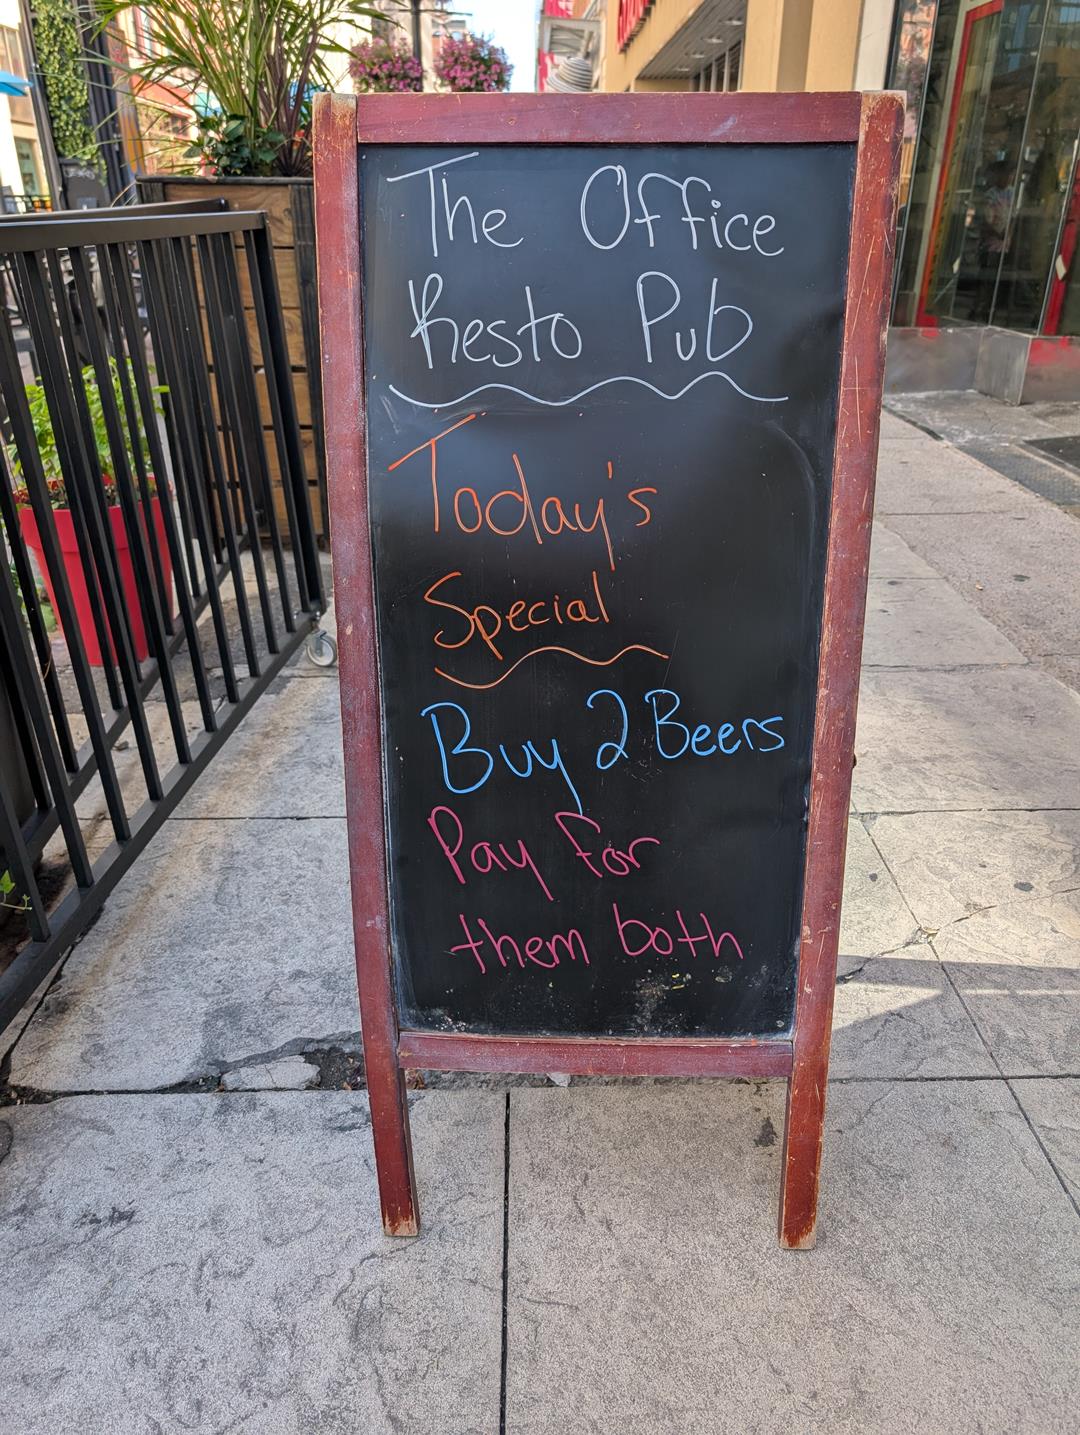 The Office
Resto Pub
Today's
Special
Buy 2 Beers
Pay for
them both